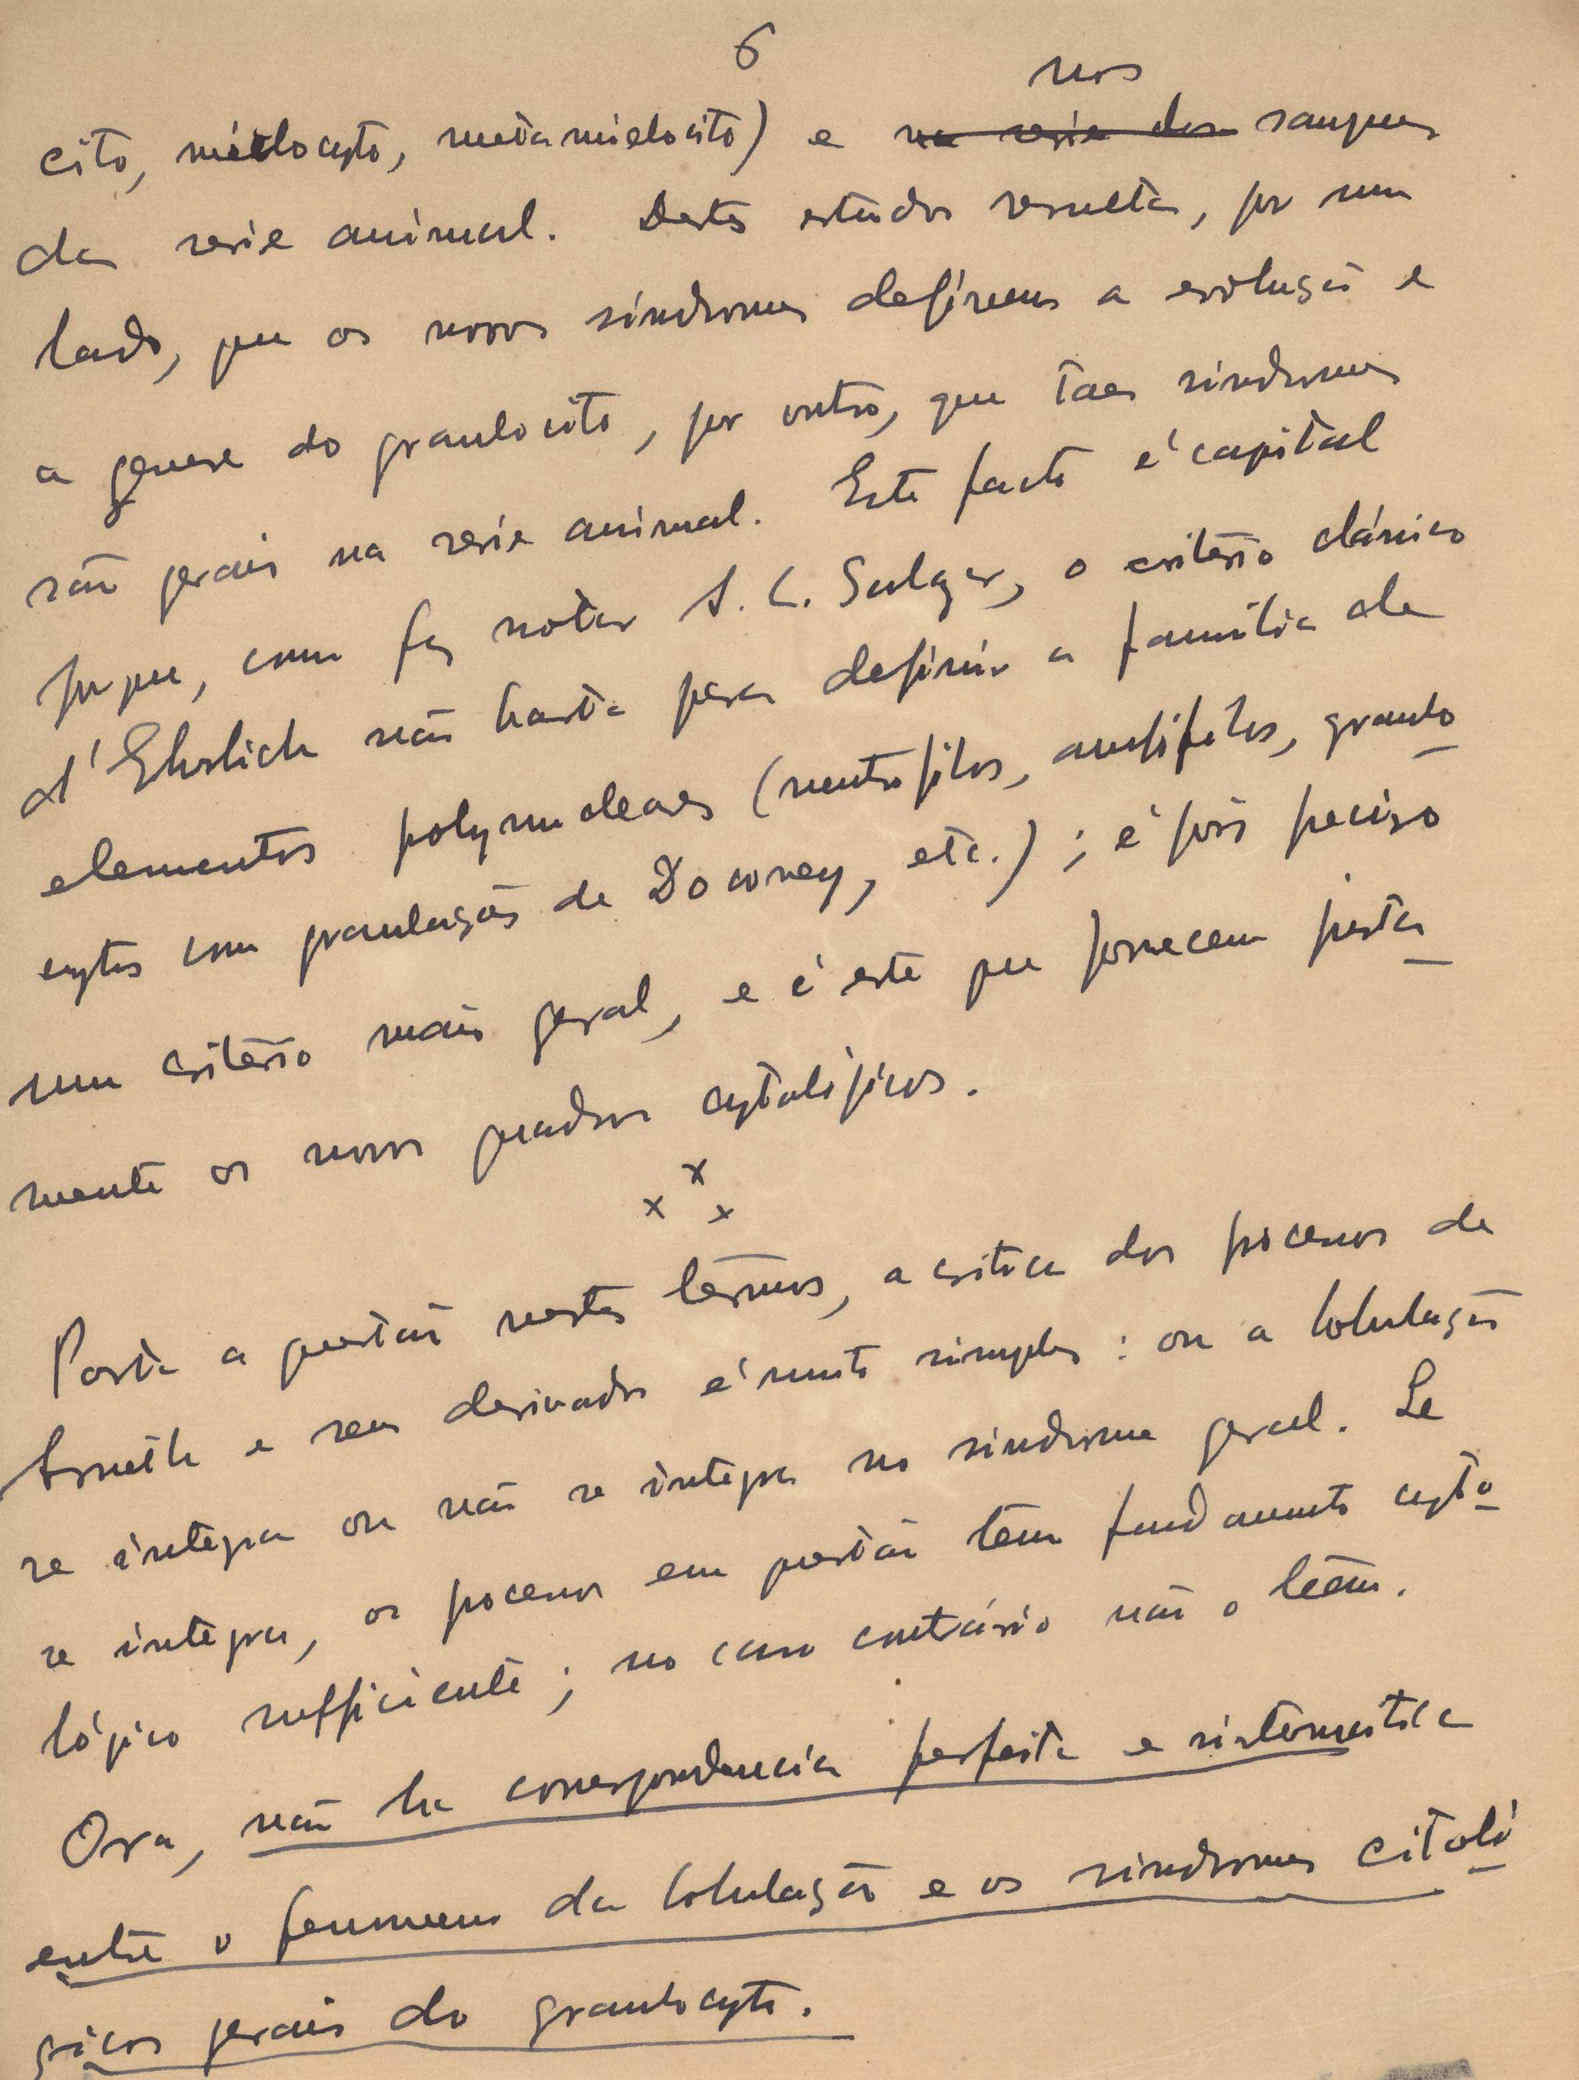 6
nos
cito, mielocyto, metamielocito) e na serie dos sangues
da serie animal. Destes estudos resulta, por um
lado, que os novos síndromes definem a evolução e
a genese do granulocito, por outro, que taes sindromes
são gerais na serie animal. Este facto é capital
porque, como faz notar A. C. Sulger, o critério clássico
d'Ehrlich não basta para definir a familia de
elementos polynucleares (neutrofilos, amfifilos, granulo
cytos com granulações de Downey, etc.); é pois preciso
um critério mais geral, e é este que fornecem justa
mente os novos quadros cytológicos.
x x x
Posta a questão nestes termos, a critica dos processos de
Arneth e seus derivados é muito simples: ou a lobulação
se integra ou não se integra no sindrome geral. Se
se integra, os processos em questão têm fundamento cyto
lógico sufficiente; no caso contrário não o teem.
Ora, não ha correspondencia perfeita e sistematica
entre o fenomeno da lobulação e os sindromes citoló
gicos gerais do granulocyto.